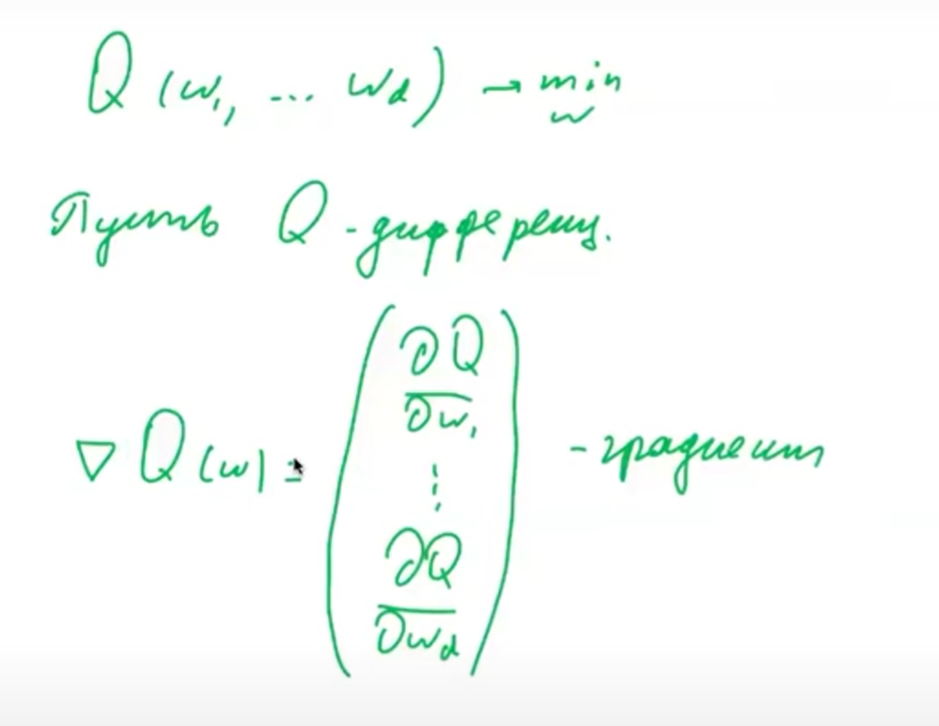 Q(w₁, ... w_d) → min
w
Пусть Q - дифференц.
∇Q(w) =
∂Q
∂w₁
⋮
∂Q
∂w_d
- градиент